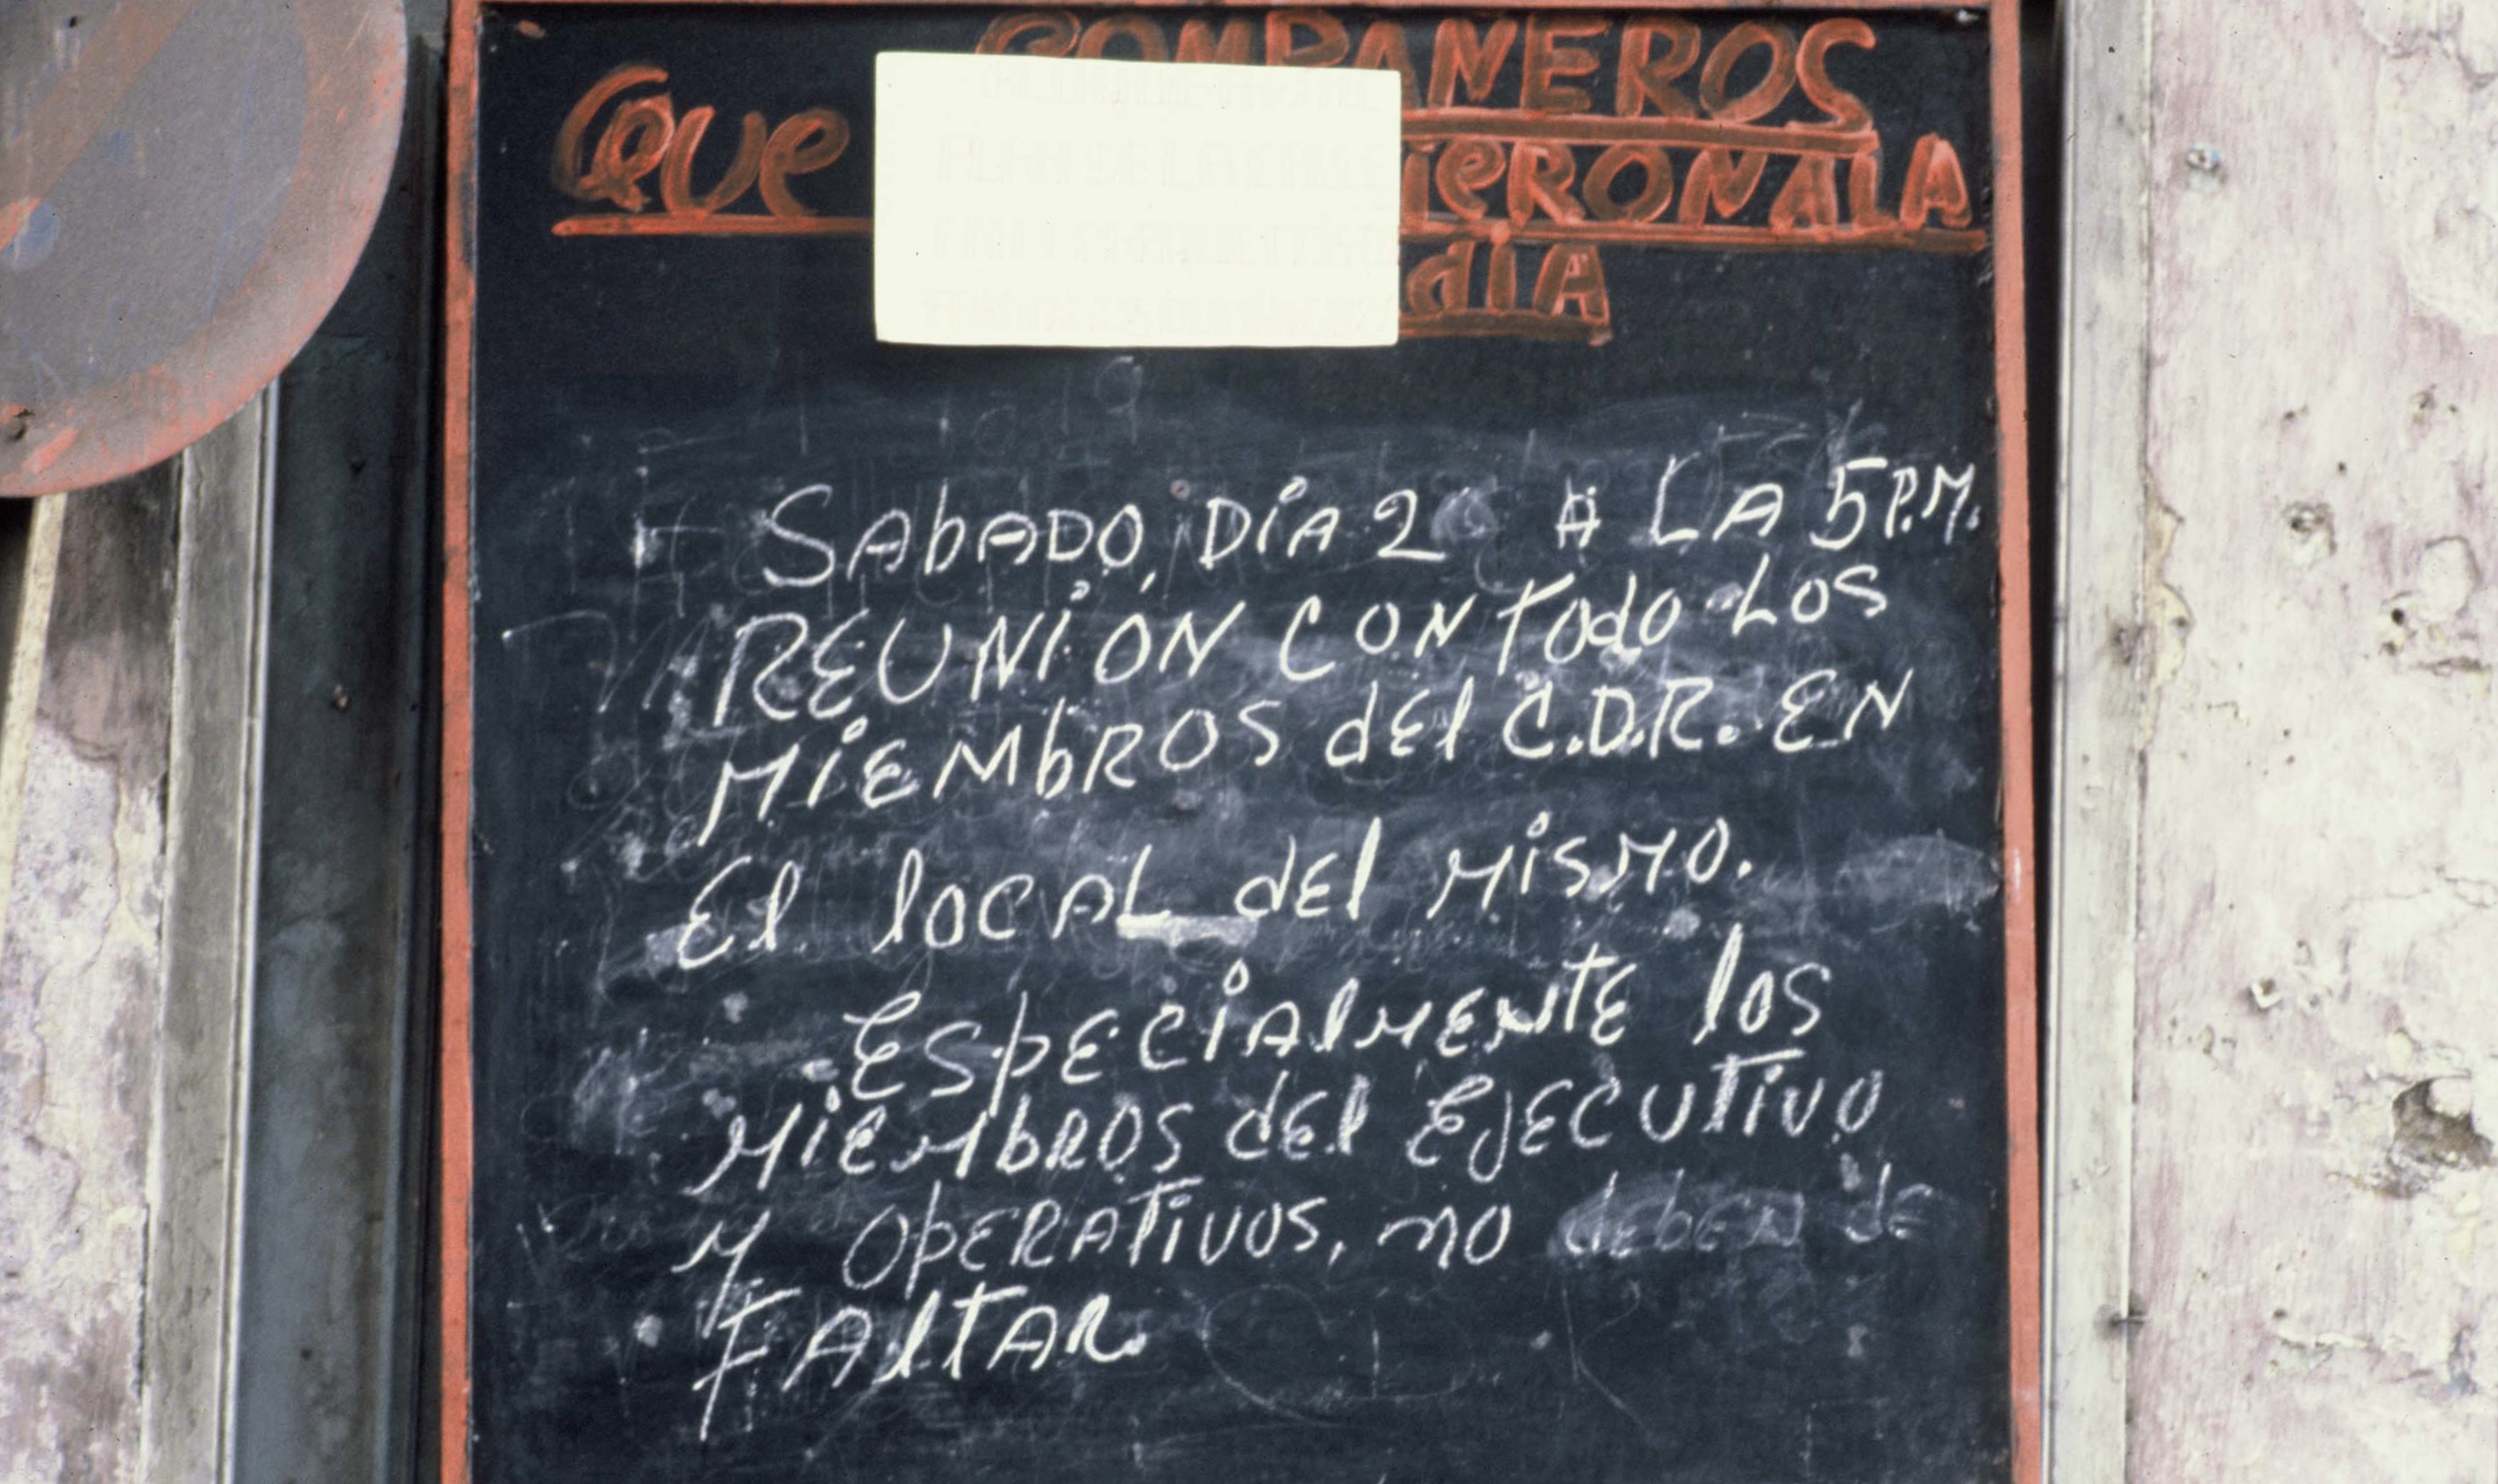 COMPAÑEROS
Que
ieRON A LA
dIA
SAbADO, DíA 2 A LA 5 P.M.
REUNIÓN CON TOdO LOS
MiEMbROS dEl C.D.R. EN
El lOCAL dEl MiSMO.
ESpECiAlMENTE lOS
MiEMbROS dEl EJECUTiVO
Y OpERATiVOS, NO dEbEN dE
FAlTAR